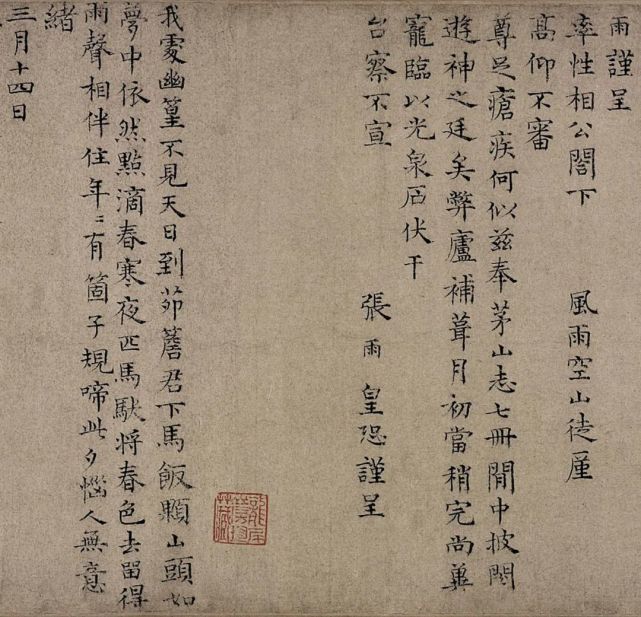 雨謹呈
率性相公閤下　風雨空山徒厪
高仰不審
尊足瘡疾何似茲奉茅山志七冊閒中披閱
遊神之廷矣弊廬補葺月初當稍完尚冀
寵臨以光泉石伏干
台察不宣　張雨皇恐謹呈
我處幽篁不見天日到茆簷君下馬飯顆山頭如
夢中依然點滴春寒夜匹馬馱將春色去留得
雨聲相伴住年〻有箇子規啼此夕惱人無意
緒
三月十四日